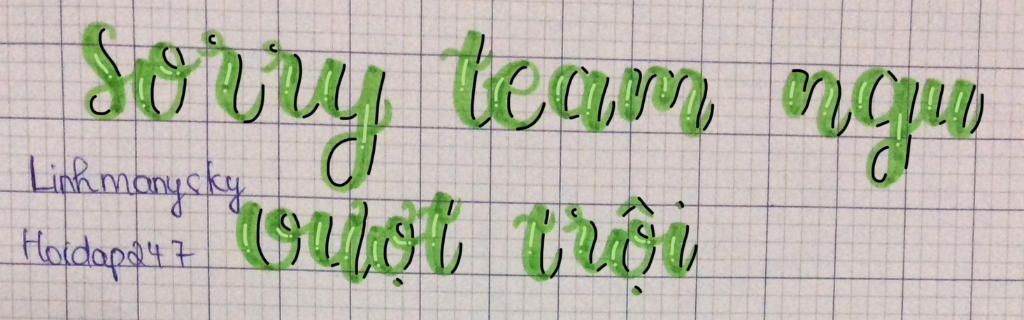 Sorry team ngu
vượt trội
Linhmanysky
Hoidap247